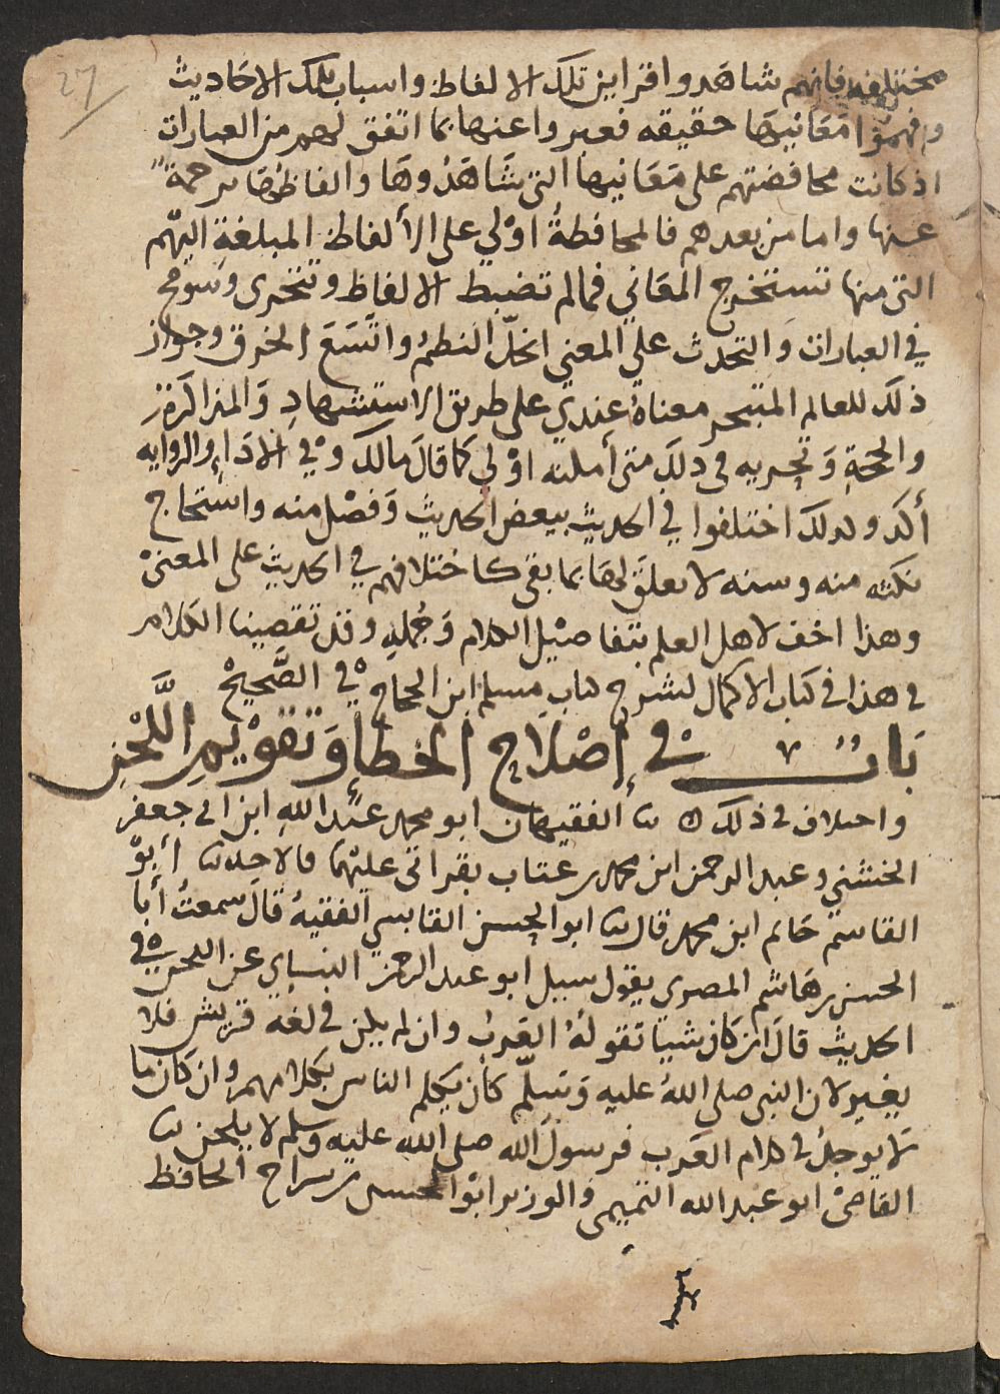 27
مختلفه فانهم شاهدوا قراين تلك الالفاظ واسباب تلك الاحاديث
وفهموا مَعَانيهَا حقيقه فعبروا عنها بما اتفق لهم من العبارات
اذ كانت محافضتهم على مَعَانيها التى شَاهَدُوهَا والفاظهَا ترجمةً
عنها واما من بعدهم فالمحافظةُ اوْلي على الألفاظ المبلغةِ اليهم
التى منها تستخرج المعَاني فمالم تضبط الالفاظ وتتحرى وسومح
في العبارات وَالتحدث علي المعنى انحلّ النظمُ واتَّسَعَ الخرق وجواز
ذلك للعالم المتبحر معناهُ عندي على طريق الاستشهادِ وَالمذاكره
والحجةِ وَتحريه فى ذلكَ متى أمكنه اوْلي كما قال مالك وفْي الادَاءِ والروايه
أكد ولذلك اختلفوا في الحديث ببعض الحديث وَفصْل منه واستخاج
نكته منه وسنه لا تعلقَ لهَا بما بقى كاختلافهم في الحديث على المعنىْ
وهذا اخف لاهل العلم بتفاصيْل الكلام وَجُملِهِ وقد تقصينا الكلام
فى هذا فى كتاب الاكمال لشرح كتاب مسلم ابن الحجاج فْي الصَّحيحْ
بَابُ فْي إصْلَاحِ الخطأِ وَتقوْيمِ اللَّحْنِ
واختلاف فى ذلك ه نا الفقيهان ابو محمد عبْد اللهِ ابن ابى جعفر
الخشني وعبد الرحمن ابن محمد بن عتاب بقراتى عليْهما قالا حدثنا أبوْ
القاسم حَاتم ابن محمد قال نا ابو الحسن القابسي الفقيهُ قالَ سمعتُ أبَا
الحسن بن هَاشم المصري يقول سيل ابو عبد الرحمن النسايى عن اللحن في
الحديث قالَ ان كَان شيا تقولهُ العَربُ وان لم يكن فى لغه قريش فلا
يغير لان النبى صلى اللهُ عليه وَسَلّم كان يكلم الناس بكلامهم وان كان ما
لا يوجد فى كلام العَرب فرسولُ الله صلى الله عليه وسلم لا يلحن نا
القاضىْ ابو عبد الله التميمى والوزير ابوْ الحسين بن سراج الحافظ